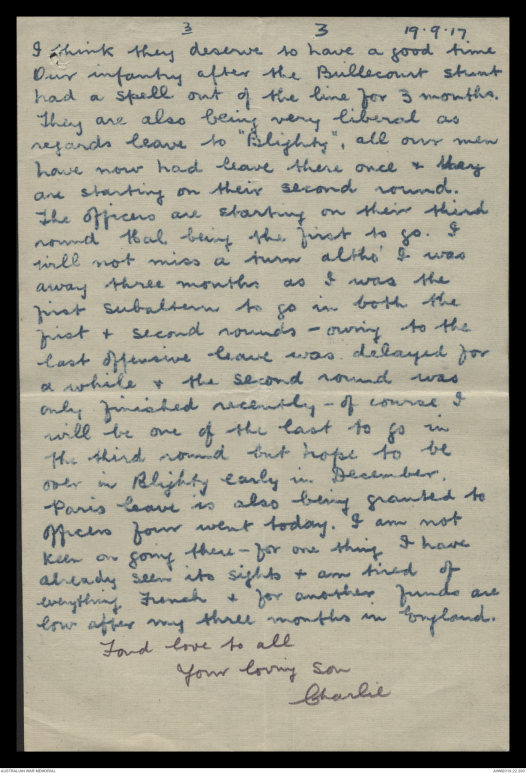 3 3 19.9.17
I think they deserve to have a good time
Our infantry after the Bullecourt stunt
had a spell out of the line for 3 months.
They are also being very liberal as
regards leave to "Blighty", all our men
have now had leave there once & they
are starting on their second round.
The officers are starting on their third
round Hal being the first to go. I
will not miss a turn altho' I was
away three months as I was the
first subaltern to go in both the
first & second rounds - owing to the
last offensive leave was delayed for
a while & the second round was
only finished recently - of course I
will be one of the last to go in
the third round but hope to be
over in Blighty early in December.
Paris leave is also being granted to
officers four went today. I am not
keen on going there - for one thing I have
already seen its sights & am tired of
everything French & for another funds are
low after my three months in England.
Fond love to all
Your loving son
Charlie
AUSTRALIAN WAR MEMORIAL